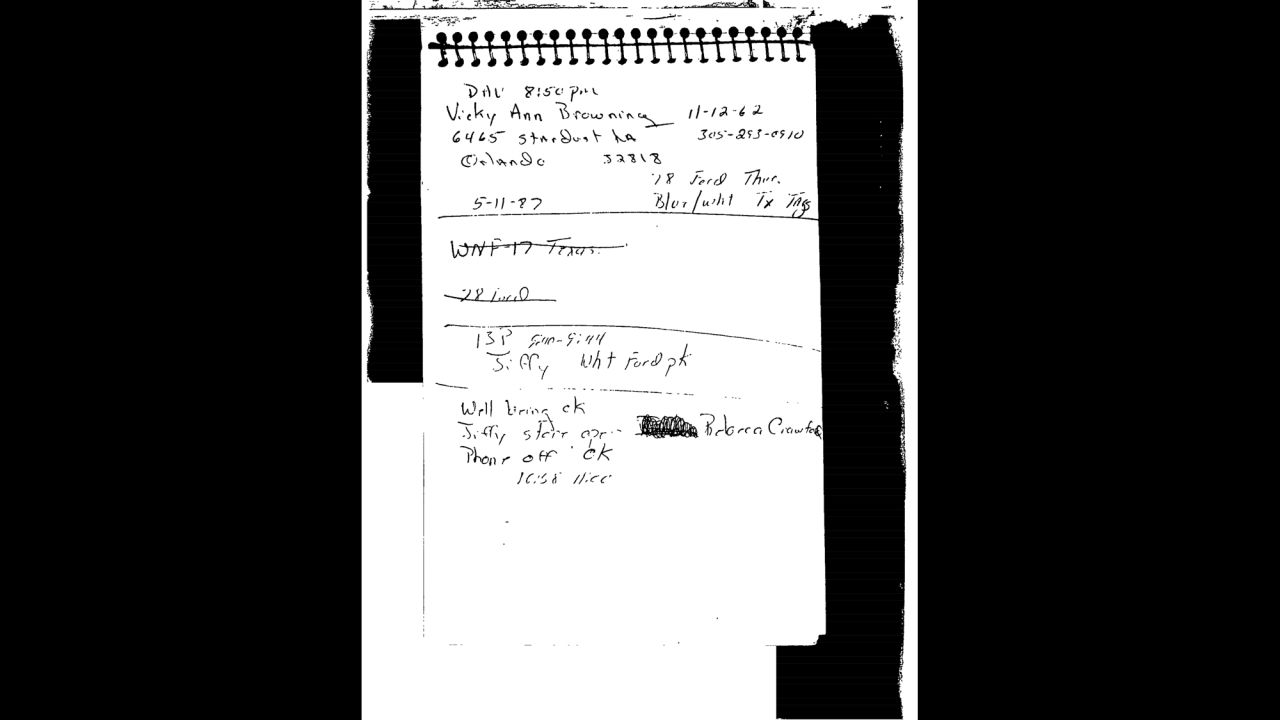 8:50 pm
Vicky Ann Browning 11-12-62
6465 Stardust Ln 305-293-0910
Orlando 32818
78 Ford Thun.
5-11-87 Blue/wht Tx Tags
WNF-17 Texas
78 Ford
13P
Jiffy Wht Ford pk
Well being ck
Jiffy store Rebecca
Phone off ck
10:58 11:00